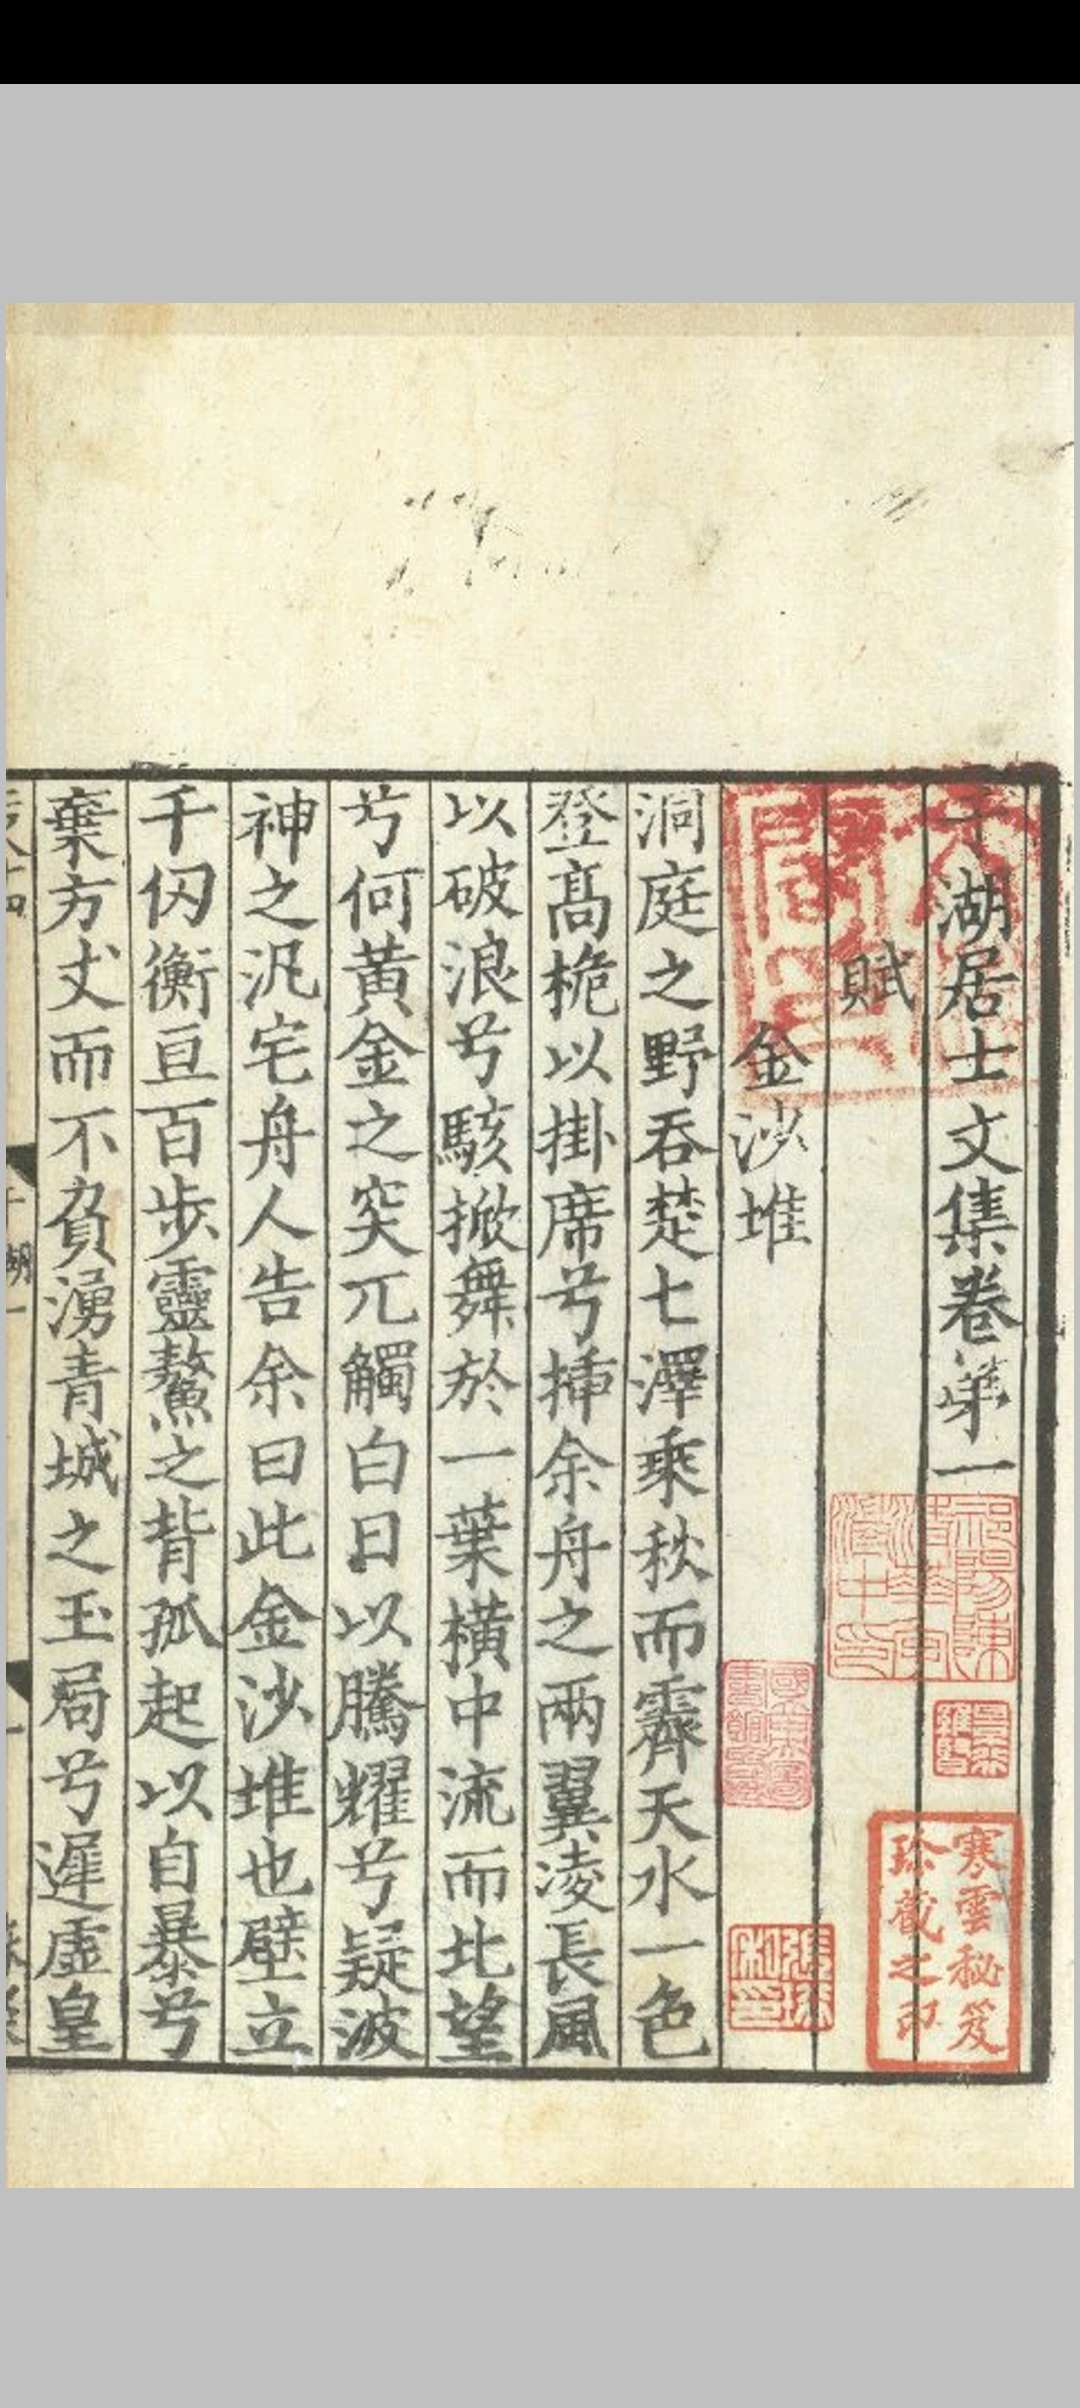 于湖居士文集卷第一
賦
金沙堆
洞庭之野吞楚七澤乘秋而霽天水一色
登髙桅以掛席兮揷余舟之兩翼凌長風
以破浪兮駭掀舞於一葉橫中流而北望
兮何黃金之突兀觸白日以騰耀兮疑波
神之汎宅舟人告余曰此金沙堆也壁立
千仭衡亘百步靈鰲之背孤起以自暴兮
棄方丈而不負湧青城之玉局兮遲虛皇
祁陽陳澄中
寒雲秘笈
珍藏之印